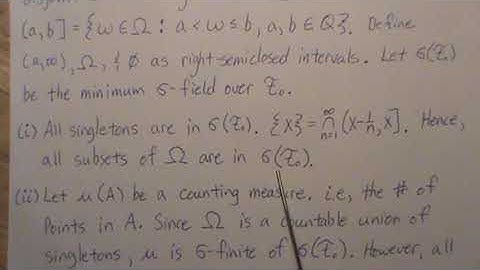 (a,b] = {ω ∈ Ω : a < ω ≤ b, a, b ∈ Q}. Define
(a,∞), Ω, & ∅ as right-semiclosed intervals. Let σ(F₀)
be the minimum σ-field over F₀.
(i) All singletons are in σ(F₀). {x} = ∩_{n=1}^{∞} (x-1/n, x]. Hence,
all subsets of Ω are in σ(F₀).
(ii) Let μ(A) be a counting measure. i.e, the # of
Points in A. Since Ω is a countable union of
singletons, μ is σ-finite of σ(F₀). However, all